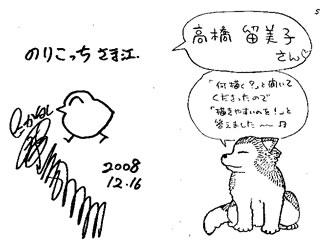 のりこっち さま江.
2008
12.16
高橋 留美子
さん♡
「何描く?」と聞いて
くださったので
「描きやすいのを!」と
答えました〜〜♫